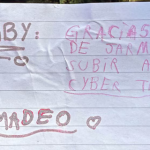 BY:
GRACIAS
DE JARM
SUBIR A
CYBER T
MADEO